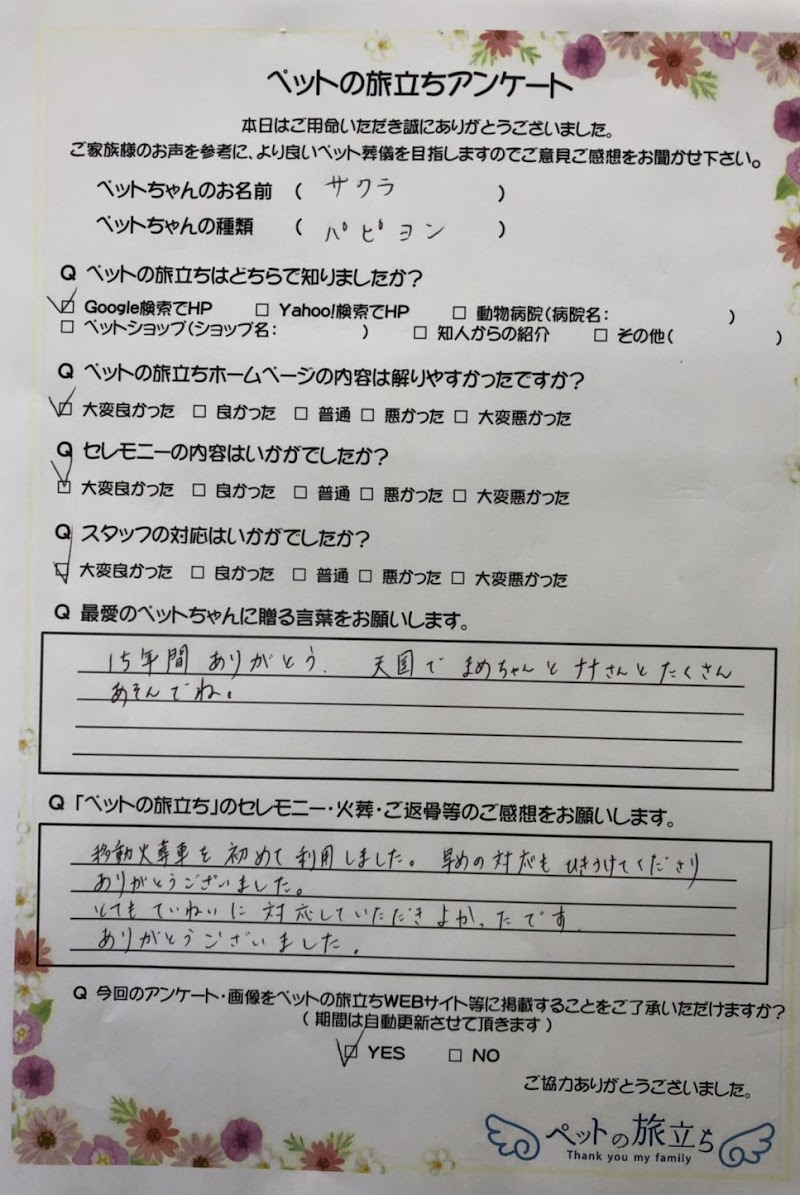 ペットの旅立ちアンケート
本日はご用命いただき誠にありがとうございました。
ご家族様のお声を参考に、より良いペット葬儀を目指しますのでご意見ご感想をお聞かせ下さい。
ペットちゃんのお名前 ( サクラ )
ペットちゃんの種類 ( パピヨン )
Q ペットの旅立ちはどちらで知りましたか?
☑ Google検索でHP □ Yahoo!検索でHP □ 動物病院(病院名: )
□ ペットショップ(ショップ名: ) □ 知人からの紹介 □ その他( )
Q ペットの旅立ちホームページの内容は解りやすかったですか?
☑ 大変良かった □ 良かった □ 普通 □ 悪かった □ 大変悪かった
Q セレモニーの内容はいかがでしたか?
☑ 大変良かった □ 良かった □ 普通 □ 悪かった □ 大変悪かった
Q スタッフの対応はいかがでしたか?
☑ 大変良かった □ 良かった □ 普通 □ 悪かった □ 大変悪かった
Q 最愛のペットちゃんに贈る言葉をお願いします。
15年間 ありがとう. 天国で まめちゃんと ナナさんと たくさん
あそんでね。
Q 「ペットの旅立ち」のセレモニー・火葬・ご返骨等のご感想をお願いします。
移動火葬車を 初めて 利用しました。 早めの対応も ひきうけてくださり
ありがとうございました。
とても ていねいに 対応していただき よかったです.
ありがとうございました.
Q 今回のアンケート・画像をペットの旅立ちWEBサイト等に掲載することをご了承いただけますか?
( 期間は自動更新させて頂きます )
☑ YES □ NO
ご協力ありがとうございました。
ペットの旅立ち
Thank you my family